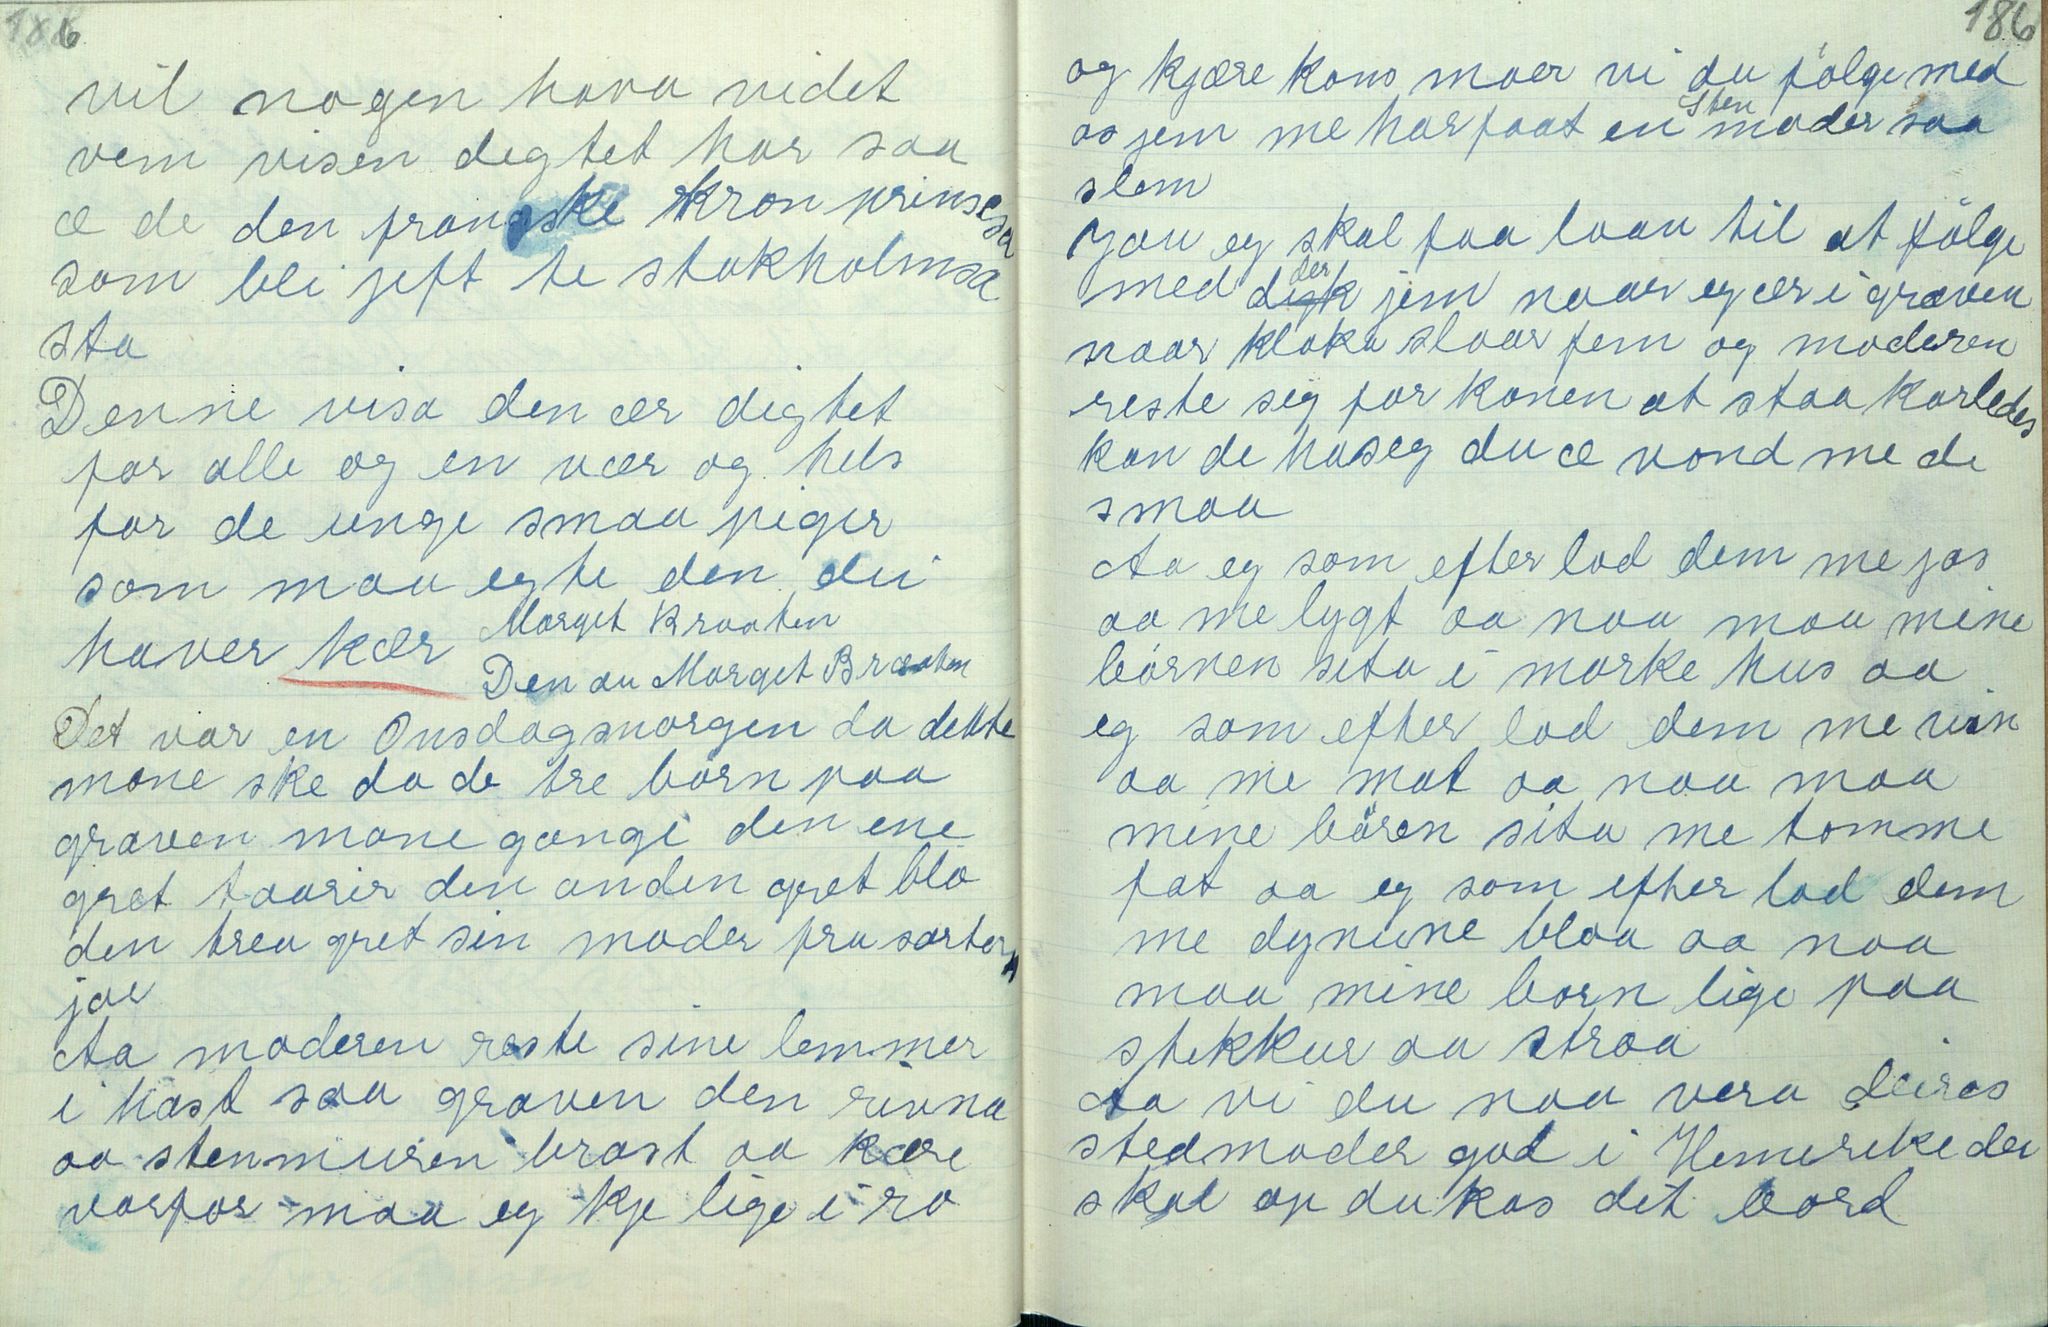 186
vil nogen hava videt
vem visen degtet har saa
æ de den franske kron prinsesa
som bli jeft te stokholmsa
sta
Denne visa den ær digtet
for alle og en vær og hels
for de unge smaa piger
som maa egte den dei
haver kær Marget Braaten
Den au Marget Braaten
Det var en Onsdagsmorgen da dette
mone ske da de tre børn paa
graven mone gange den ene
gret taarir den anden gret blo
den trea gret sin moder fra sorter
jor
Aa moderen reste sine lemmer
i hast saa graven den rivna
aa stenmuren brast aa kære
vorfor maa eg kje lige i ro
186
og kjære kons moer vi du følge med
os jem me har faat en sten moder saa
slem
Jau eg skal faa laav til at følge
med der jem naar eg ær i graven
naar kloka slaar fem og moderen
reste sig for konen at staa korledes
kan de ha seg du æ vond me de
smaa
Aa eg som efter lod dem me jos
aa me lygt aa naa maa mine
børnen sita i morke hus aa
eg som efter lod dem me vin
aa me mat aa naa maa
mine bören sita me tomme
fat aa eg som efter lod dem
me dynune blaa aa naa
maa mine born lige paa
stekkur aa straa
Aa vi du naa vera deiras
stedmoder god i Hemerike dei
skal op du kas dit bord